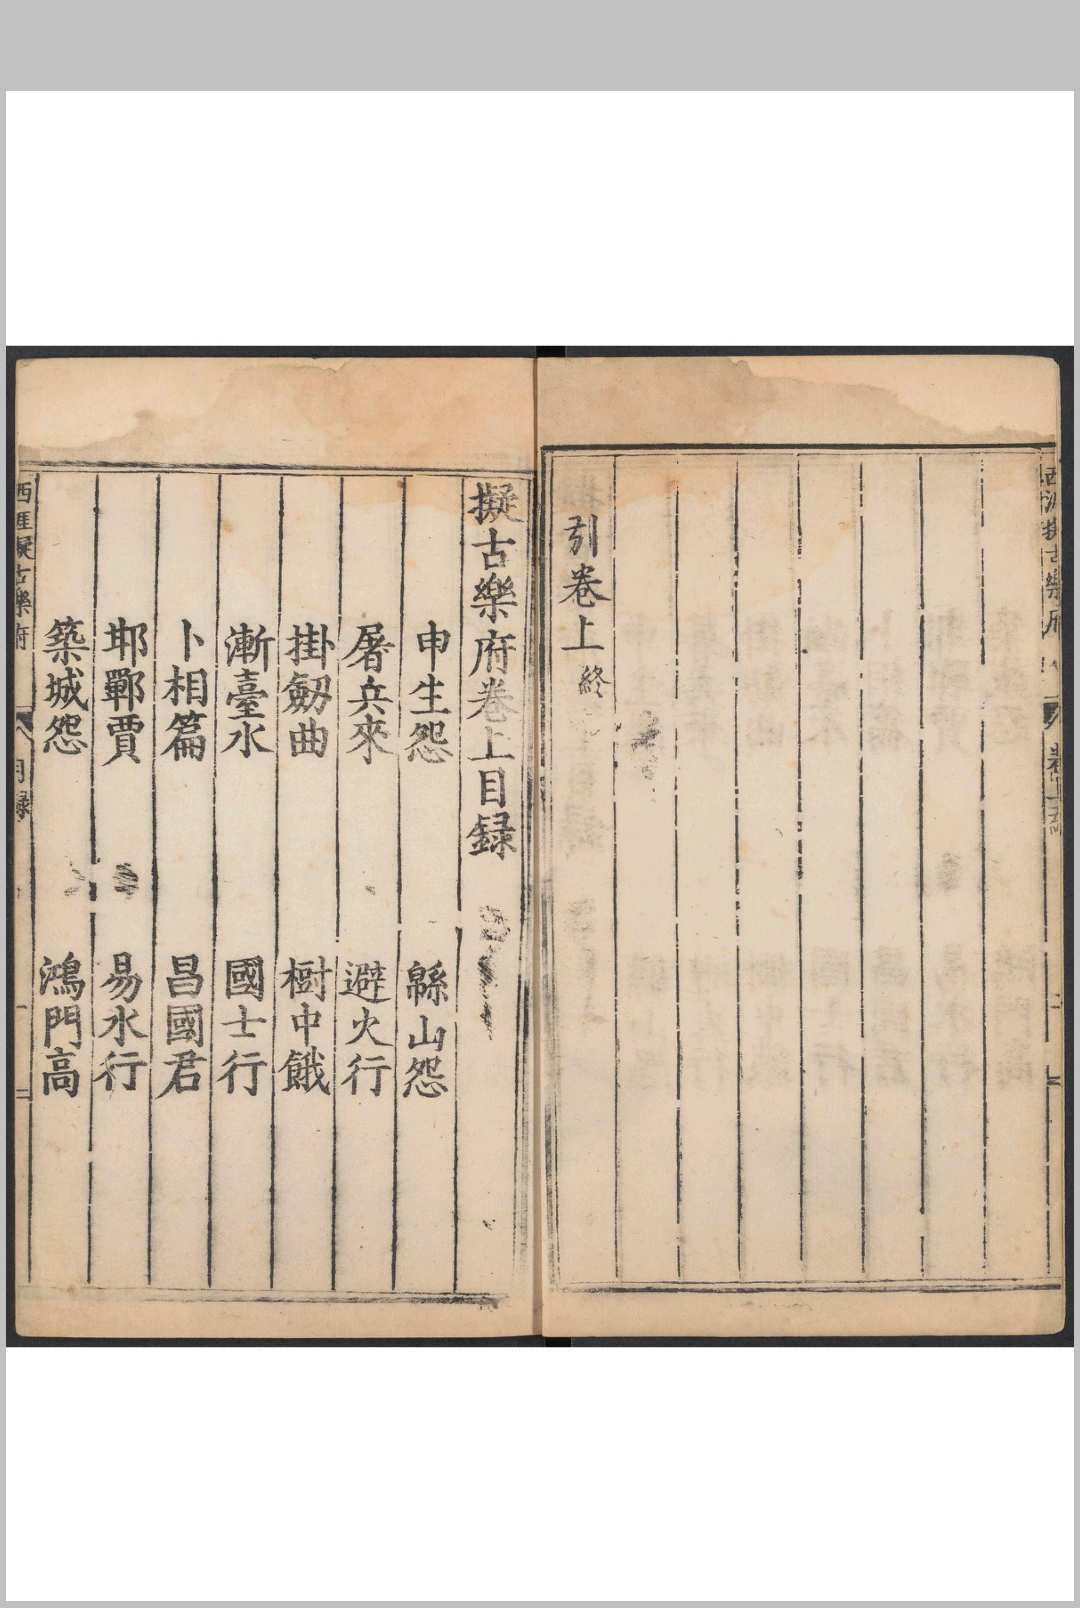 西涯擬古樂府
卷上
引卷上終
擬古樂府卷上目録
申生怨 緜山怨
屠兵來 避火行
掛劒曲 樹中餓
漸臺水 國士行
卜相篇 昌國君
邯鄲賈 易水行
築城怨 鴻門高
西涯擬古樂府
目録
一